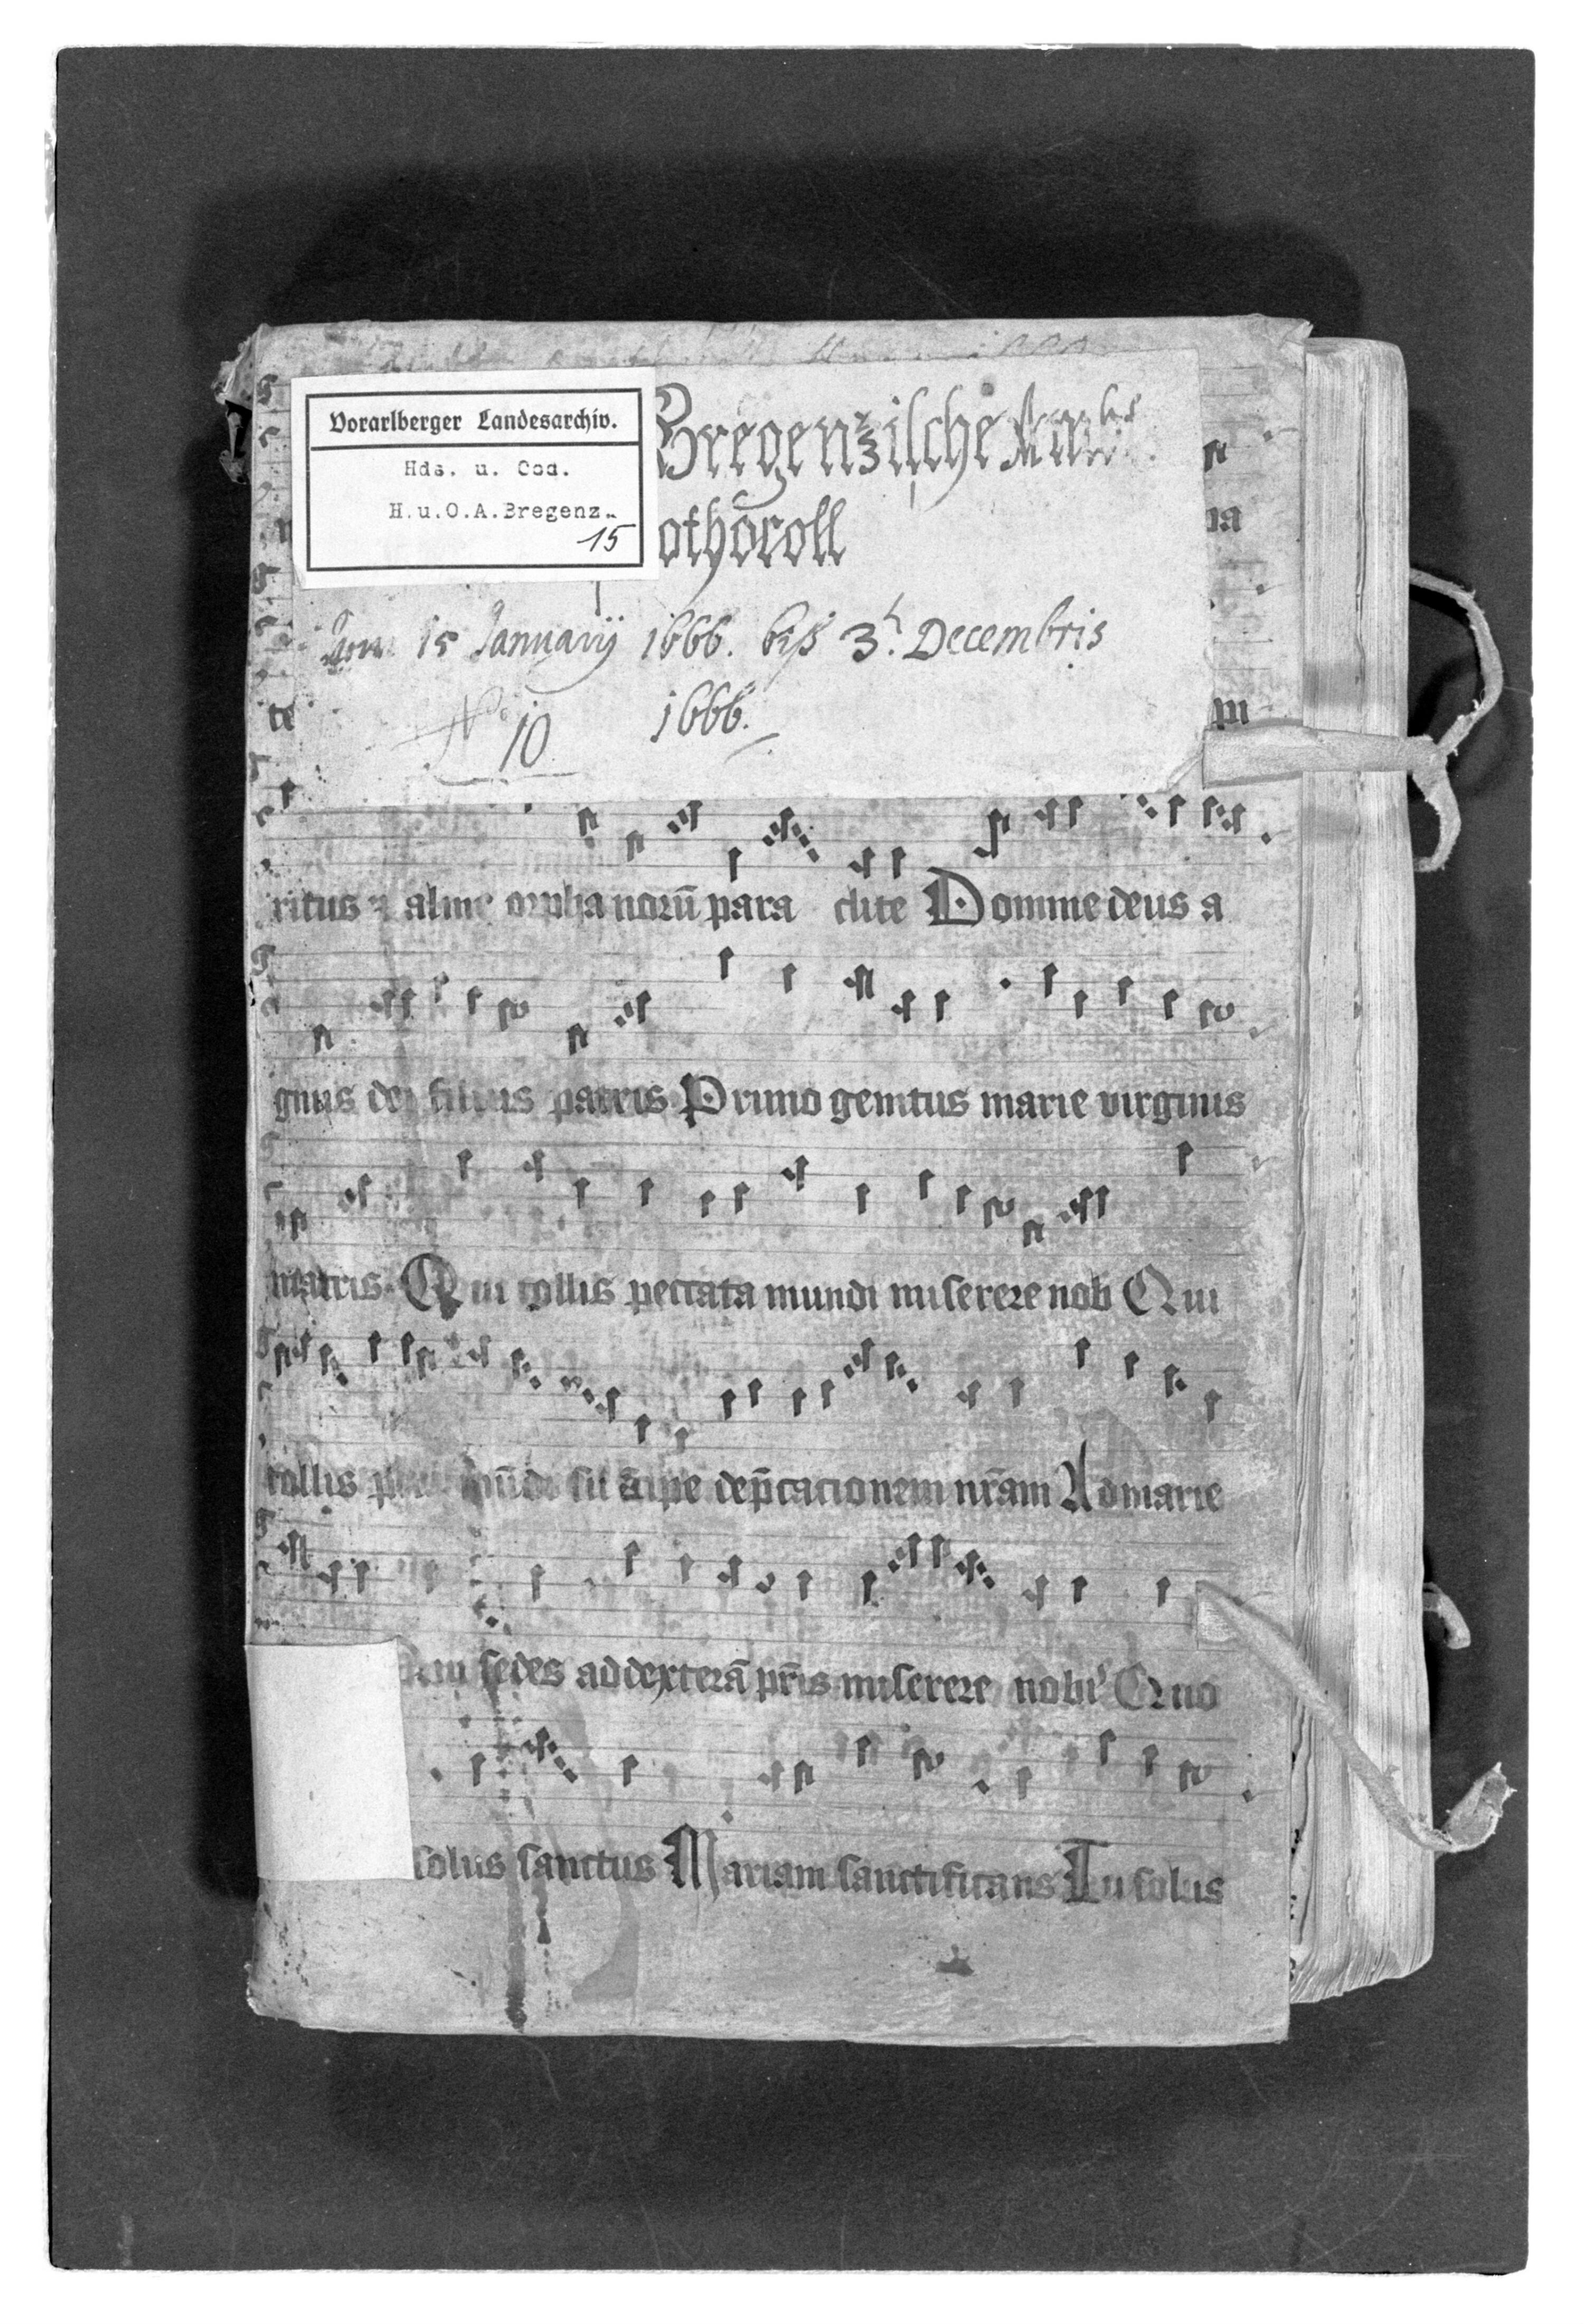 Vorarlberger Landesarchiv.
Hds. u. Cod.
H.u.O.A.Bregenz.
15
Bregenzische Ambts
othocoll
15 Januarij 1666. biß 3. Decembris
1666.
No 10
na
te
m
ritus & alme orphanorū para clite Domine deus a
gnus dei filius patris Primo genitus marie virginis
matris Qui tollis peccata mundi miserere nob Qui
tollis mūdi suscipe dep̄cacionem nr̄am Ad marie
Qui sedes ad dexterā pr̄is miserere nobis Quo
solus sanctus Mariam sanctificans Tu solus